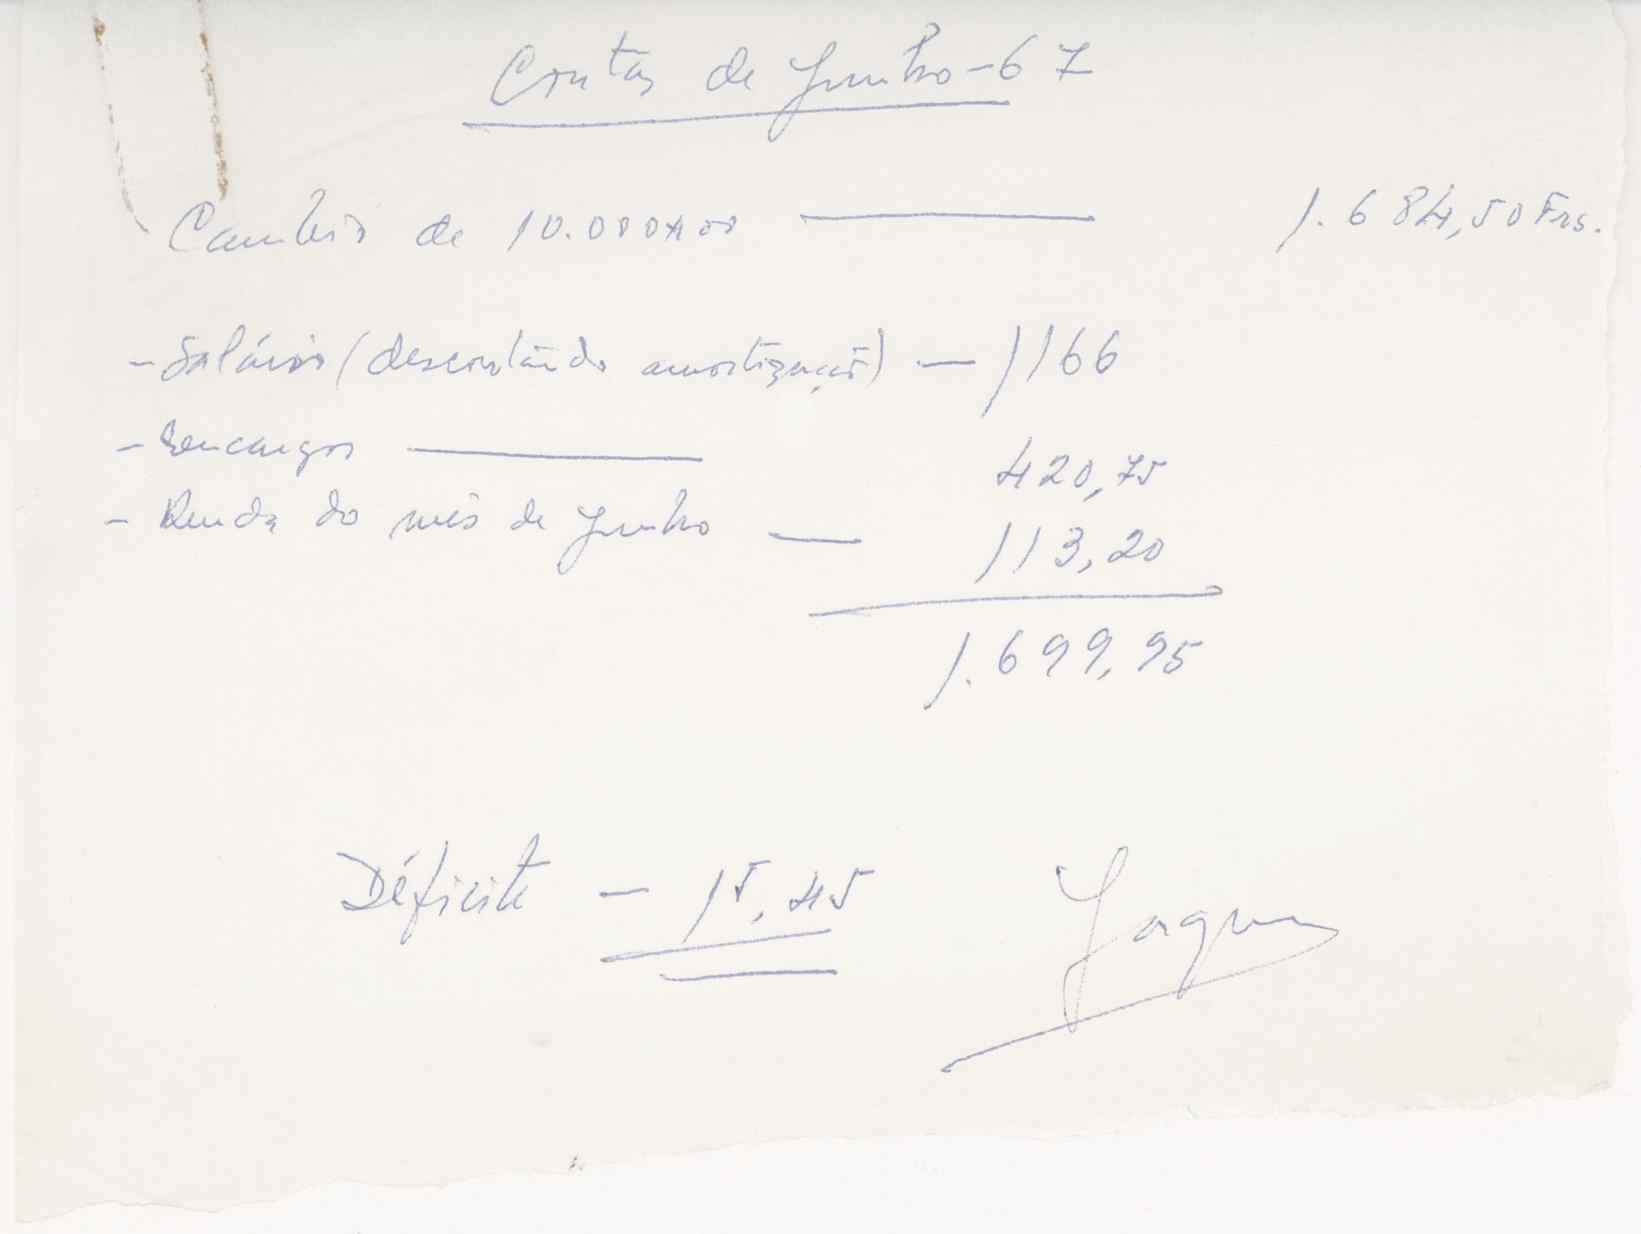 Contas de Junho-67
Cambio de 10.000$00 — 1.684,50 Frs.
- Salários (descontando amortização) — 1166
- Encargos — 420,75
- Renda do mês de Junho — 113,20
1.699,95
Déficite — 15,45